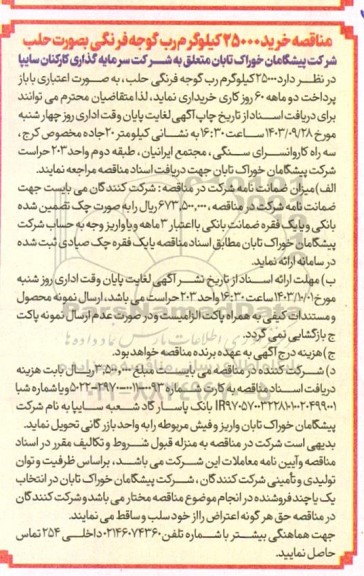 مناقصه خرید ۲۵۰۰۰ کیلوگرم رب گوجه فرنگی بصورت حلب
شرکت پیشگامان خوراک تابان متعلق به شرکت سرمایه گذاری کارکنان سایپا
در نظر دارد ۲۵۰۰۰ کیلوگرم رب گوجه فرنگی حلب، به صورت اعتباری با باز
پرداخت دو ماهه ۶۰ روز کاری خریداری نماید، لذا متقاضیان محترم می توانند
برای دریافت اسناد از تاریخ چاپ آگهی لغایت پایان وقت اداری روز چهار شنبه
مورخ ۱۴۰۳/۰۹/۲۸ ساعت ۱۶:۳۰ به نشانی کیلومتر ۲۰ جاده مخصوص کرج،
سه راه کاروانسرای سنگی، مجتمع ایرانیان، طبقه دوم واحد ۲۰۳ حراست
شرکت پیشگامان خوراک تابان جهت دریافت اسناد مناقصه مراجعه نمایند.
الف) میزان ضمانت نامه شرکت در مناقصه: شرکت کنندگان می بایست جهت
ضمانت نامه شرکت در مناقصه، ۶۷۳,۵۰۰,۰۰۰ ریال را به صورت چک تضمین شده
بانکی و یا یک فقره ضمانت بانکی با اعتبار ۳ ماهه و یا واریز وجه به حساب شرکت
پیشگامان خوراک تابان مطابق اسناد مناقصه یا یک فقره چک صیادی ثبت شده
در سامانه ارائه نماید.
ب) مهلت ارائه اسناد از تاریخ نشر آگهی لغایت پایان وقت اداری روز شنبه
مورخ ۱۴۰۳/۱۰/۰۱ ساعت ۱۶:۳۰ واحد ۲۰۳ حراست می باشد، ارسال نمونه محصول
و مستندات کیفی به همراه پاکت الزامیست و در صورت عدم ارسال نمونه پاکت
ج بازگشایی نمی گردد.
ج) هزینه درج آگهی به عهده برنده مناقصه خواهد بود.
د) شرکت کننده در مناقصه می بایست مبلغ ۳,۵۰۰,۰۰۰ ریال بابت هزینه
دریافت اسناد مناقصه به کارت شماره
بانک پاسارگاد شعبه سایپا به نام شرکت
پیشگامان خوراک تابان واریز و فیش مربوطه را به واحد بازرگانی تحویل نماید.
بدیهی است شرکت در مناقصه به منزله قبول شروط و تکالیف مقرر در اسناد
مناقصه و آیین نامه معاملات این شرکت می باشد، براساس ظرفیت و توان
تولیدی و تأمینی شرکت کنندگان، شرکت پیشگامان خوراک تابان در انتخاب
یک یا چند فروشنده در انجام موضوع مناقصه مختار می باشد و شرکت کنندگان
در مناقصه حق هر گونه اعتراض را از خود سلب و ساقط می نمایند.
جهت هماهنگی بیشتر با شماره تلفن ۰۲۱۴۶۰۷۴۳۶۰ داخلی ۲۵۴ تماس
حاصل نمایید.